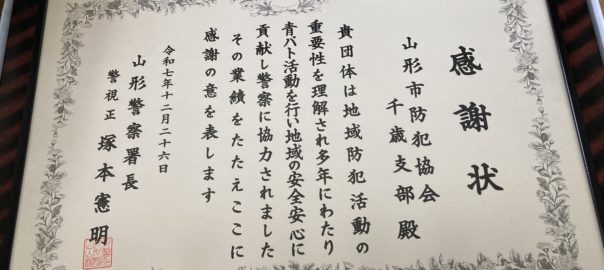 感謝状
山形市防犯協会
千歳支部殿
貴団体は地域防犯活動の
重要性を理解され多年にわたり
青パト活動を行い地域の安全安心に
貢献し警察に協力されました
その業績をたたえここに
感謝の意を表します
令和七年十二月二十六日
山形警察署長
警視正 塚本憲明